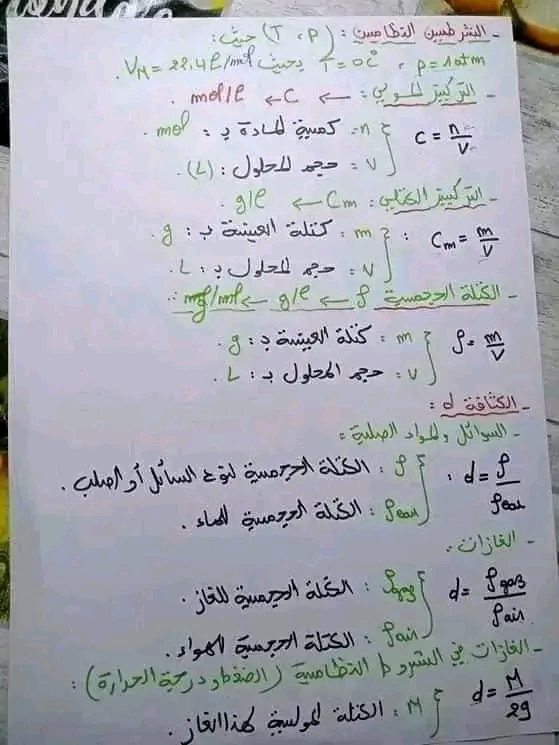 - الشرطين النظاميين : (T ، P) حيث :
P = 1 atm ، T = 0 c° بحيث V_M = 22.4 l/mol .
- التركيز المولي : ← C ← mol/l .
C = n/V { n : كمية المادة بـ : mol .
V : حجم المحلول : (L) .
- التركيز الكتلي : Cm ← g/l
Cm = m/V : { m : كتلة العينة بـ : g .
V : حجم المحلول بـ : L
- الكتلة الحجمية ρ ← g/l ← mg/ml :
ρ = m/V { m : كتلة العينة بـ : g .
V : حجم المحلول بـ : L .
- الكثافة d :
- السوائل والمواد الصلبة :
d = ρ/ρeau : { ρ : الكتلة الحجمية لنوع السائل أو الصلب .
ρeau : الكتلة الحجمية للماء .
- الغازات :
d = ρgaz/ρair { ρgaz : الكتلة الحجمية للغاز .
ρair : الكتلة الحجمية للهواء .
- الغازات في الشروط النظامية (الضغط و درجة الحرارة) :
d = M/29 { M : الكتلة المولية لهذا الغاز .